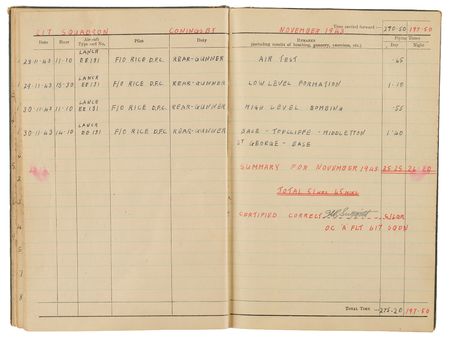 617 SQUADRON CONINGSBY NOVEMBER 1943 Time carried forward:- 270·50 197·50
Date Hour Aircraft Type and No. Pilot Duty REMARKS (including results of bombing, gunnery, exercises, etc.) Flying Times Day Night
29·11·43 11·10 LANCR EE131 F/O RICE D.F.C. REAR-GUNNER AIR TEST ·45
29·11·43 15·30 LANCR EE131 F/O RICE D.F.C. REAR-GUNNER LOW LEVEL FORMATION 1·10
30·11·43 11·10 LANCR EE131 F/O RICE D.F.C. REAR-GUNNER HIGH LEVEL BOMBING ·55
30·11·43 14·10 LANCR EE131 F/O RICE D.F.C. REAR-GUNNER BASE - TOPCLIFFE - MIDDLETON 1·40
ST GEORGE - BASE
SUMMARY FOR NOVEMBER 1943 25·25 26·20
TOTAL 51 HRS 45 MINS
CERTIFIED CORRECT S/LDR
OC A FLT 617 SQDN
TOTAL TIME 275·20 197·50